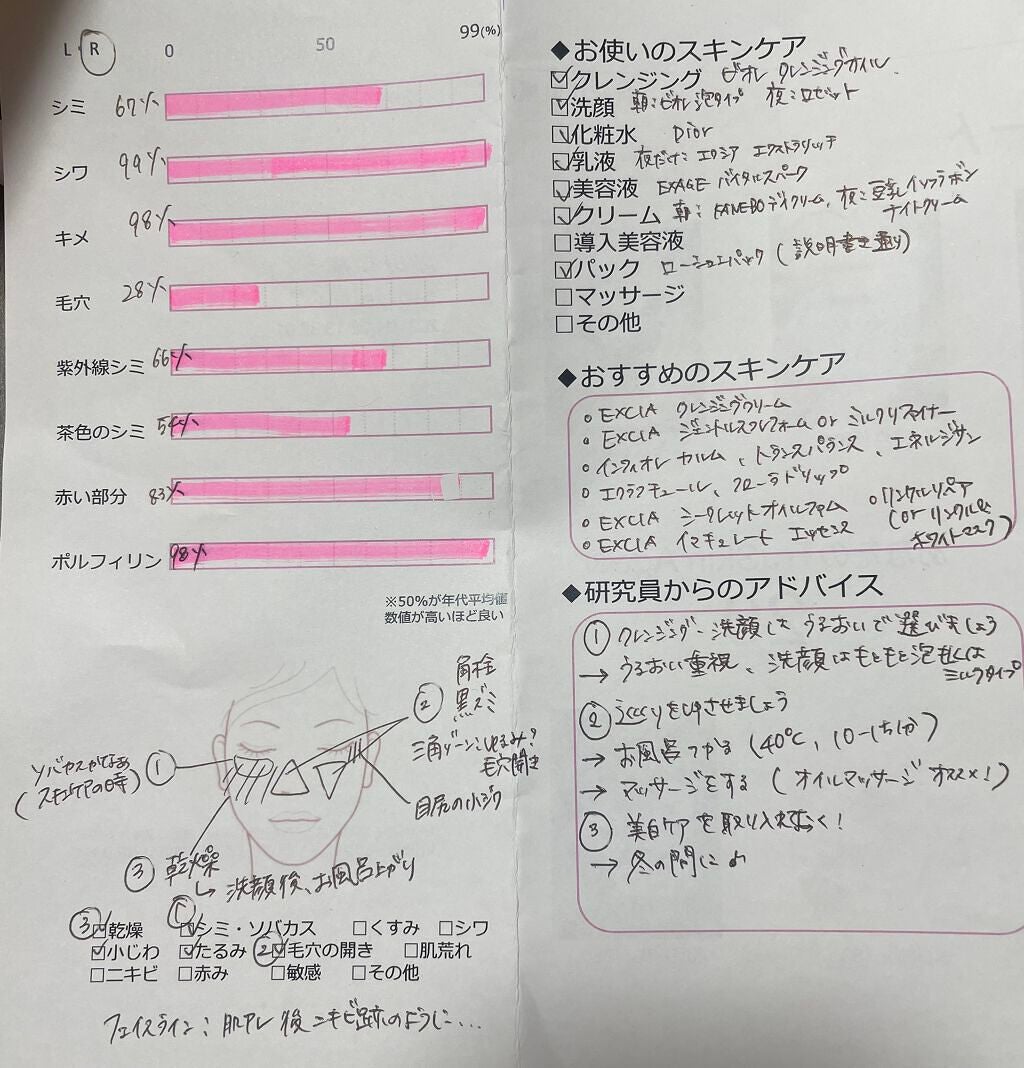 L R 0 50 99(%)
シミ 67%
シワ 99%
キメ 98%
毛穴 28%
紫外線シミ 66%
茶色のシミ 54%
赤い部分 83%
ポルフィリン 98%
※50%が年代平均値
数値が高いほど良い
角栓
② 黒ズミ
三角ゾーン:ゆるみ?
毛穴開き
ソバカスかなぁ ①
(スキンケアの時)
目尻の小ジワ
③ 乾燥
↳ 洗顔後、お風呂上がり
③☑乾燥 ①☑シミ・ソバカス □くすみ □シワ
☑小じわ ☑たるみ ②☑毛穴の開き □肌荒れ
□ニキビ □赤み □敏感 □その他
フェイスライン:肌アレ後ニキビ跡のように…
◆お使いのスキンケア
☑クレンジング ビオレ クレンジングオイル
☑洗顔 朝:ビオレ泡タイプ 夜:ロゼット
☑化粧水 Dior
☑乳液 夜だけ:エクシア エクストラリッチ
☑美容液 EXAGE バイタルスパーク
☑クリーム 朝:KANEBOデイクリーム、夜:豆乳イソフラボン
ナイトクリーム
□導入美容液
☑パック ローションパック(説明書き通り)
□マッサージ
□その他
◆おすすめのスキンケア
○ EXCIA クレンジングクリーム
○ EXCIA ジェントルスフレフォーム or ミルクリファイナー
○ インフィオレ カルム、トランスパランス、エネルジザン
○ エクラフチュール、フローラドリップ
○ EXCIA シークレットオイルファム ○リンクルリペア
(or リンクル&
○ EXCIA イマキュレート エッセンス ホワイトマスク)
◆研究員からのアドバイス
① クレンジング・洗顔は うるおいで選びましょう
→ うるおい重視、洗顔はもともと泡もしくは
ミルクタイプ
② めぐりをUPさせましょう
→ お風呂つかる(40℃、10-15分)
→ マッサージをする(オイルマッサージオススメ!)
③ 美白ケアを取り入れておく!
→ 冬の間に